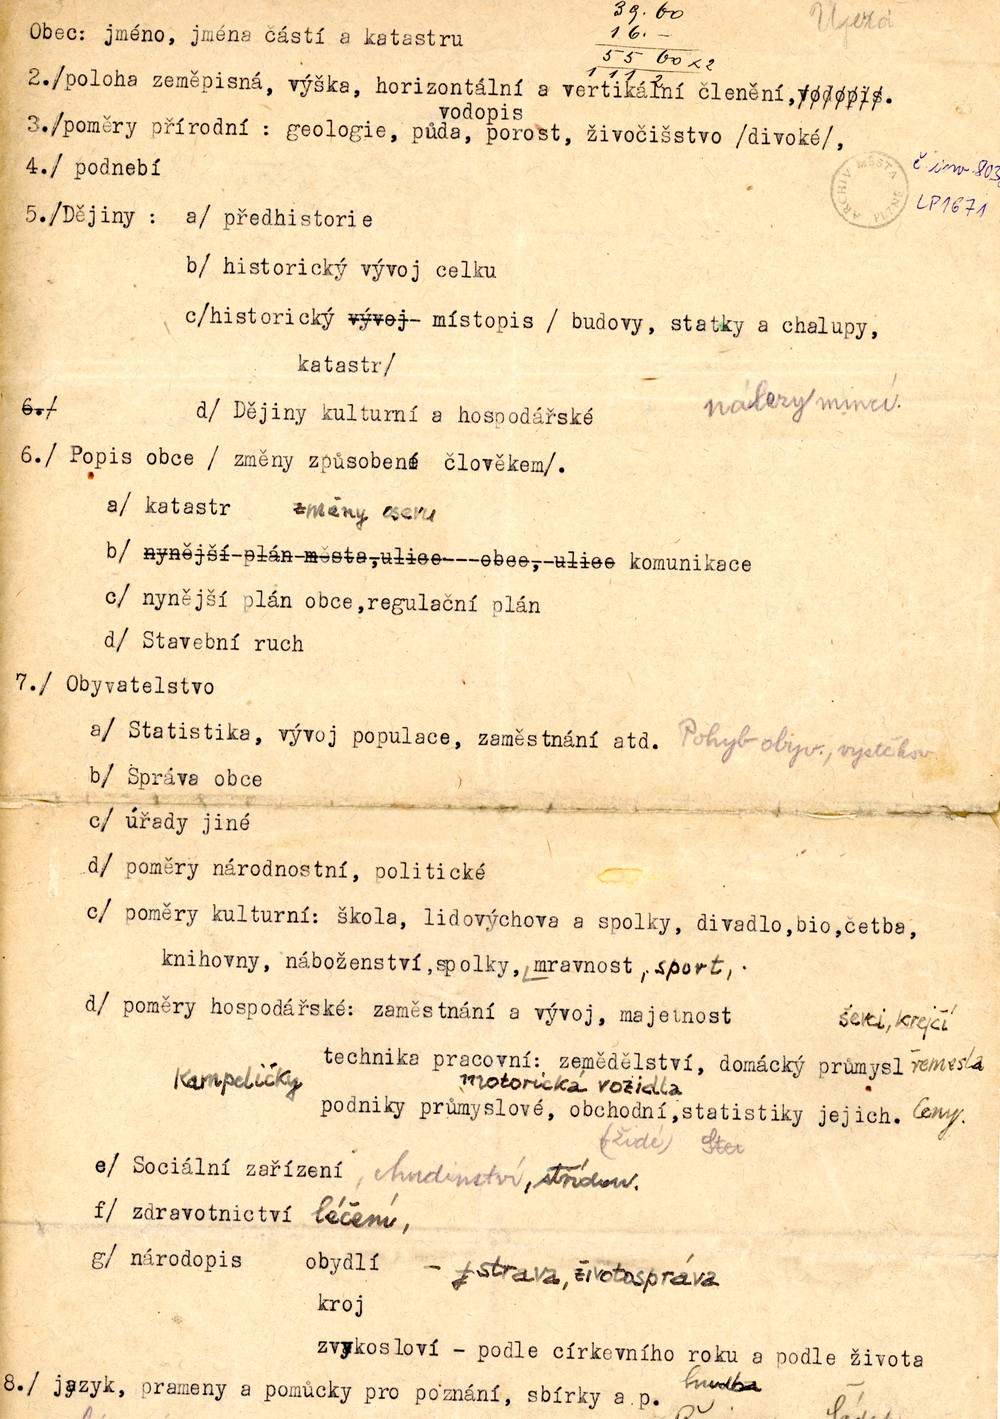 39.60
16.-
55 60 x2
111 2
Obec: jméno, jména částí a katastru
2./poloha zeměpisná, výška, horizontální a vertikální členění, vodopis.
vodopis
3./poměry přírodní : geologie, půda, porost, živočišstvo /divoké/,
4./ podnebí
č inv. 803
LP1671
ARCHIV MĚSTA PLZNĚ
5./Dějiny : a/ předhistorie
b/ historický vývoj celku
c/historický vývoj- místopis / budovy, statky a chalupy,
katastr/
6./ d/ Dějiny kulturní a hospodářské nálezy mincí.
6./ Popis obce / změny způsobené člověkem/.
a/ katastr změny osevu
b/ nynější-plán-města,ulice---obce,-ulice komunikace
c/ nynější plán obce,regulační plán
d/ Stavební ruch
7./ Obyvatelstvo
a/ Statistika, vývoj populace, zaměstnání atd. Pohyb obyv., vystěhov
b/ Správa obce
c/ úřady jiné
d/ poměry národnostní, politické
c/ poměry kulturní: škola, lidovýchova a spolky, divadlo,bio,četba,
knihovny, náboženství,spolky, mravnost, sport,
d/ poměry hospodářské: zaměstnání a vývoj, majetnost ševci, krejčí
technika pracovní: zemědělství, domácký průmysl řemesla
Kampeličky motorická vozidla
podniky průmyslové, obchodní,statistiky jejich. Ceny.
(židé)
e/ Sociální zařízení, chudinství,
f/ zdravotnictví léčení,
g/ národopis obydlí - strava, životospráva
kroj
zvykosloví - podle církevního roku a podle života
8./ jazyk, prameny a pomůcky pro poznání, sbírky a p. hudba